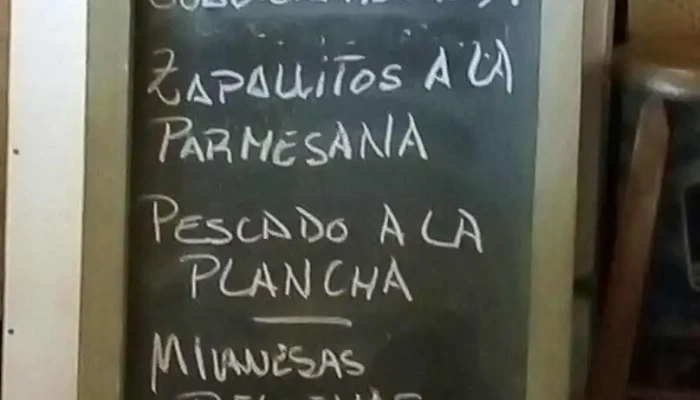 ZAPALLITOS A LA
PARMESANA
PESCADO A LA
PLANCHA
MILANESAS